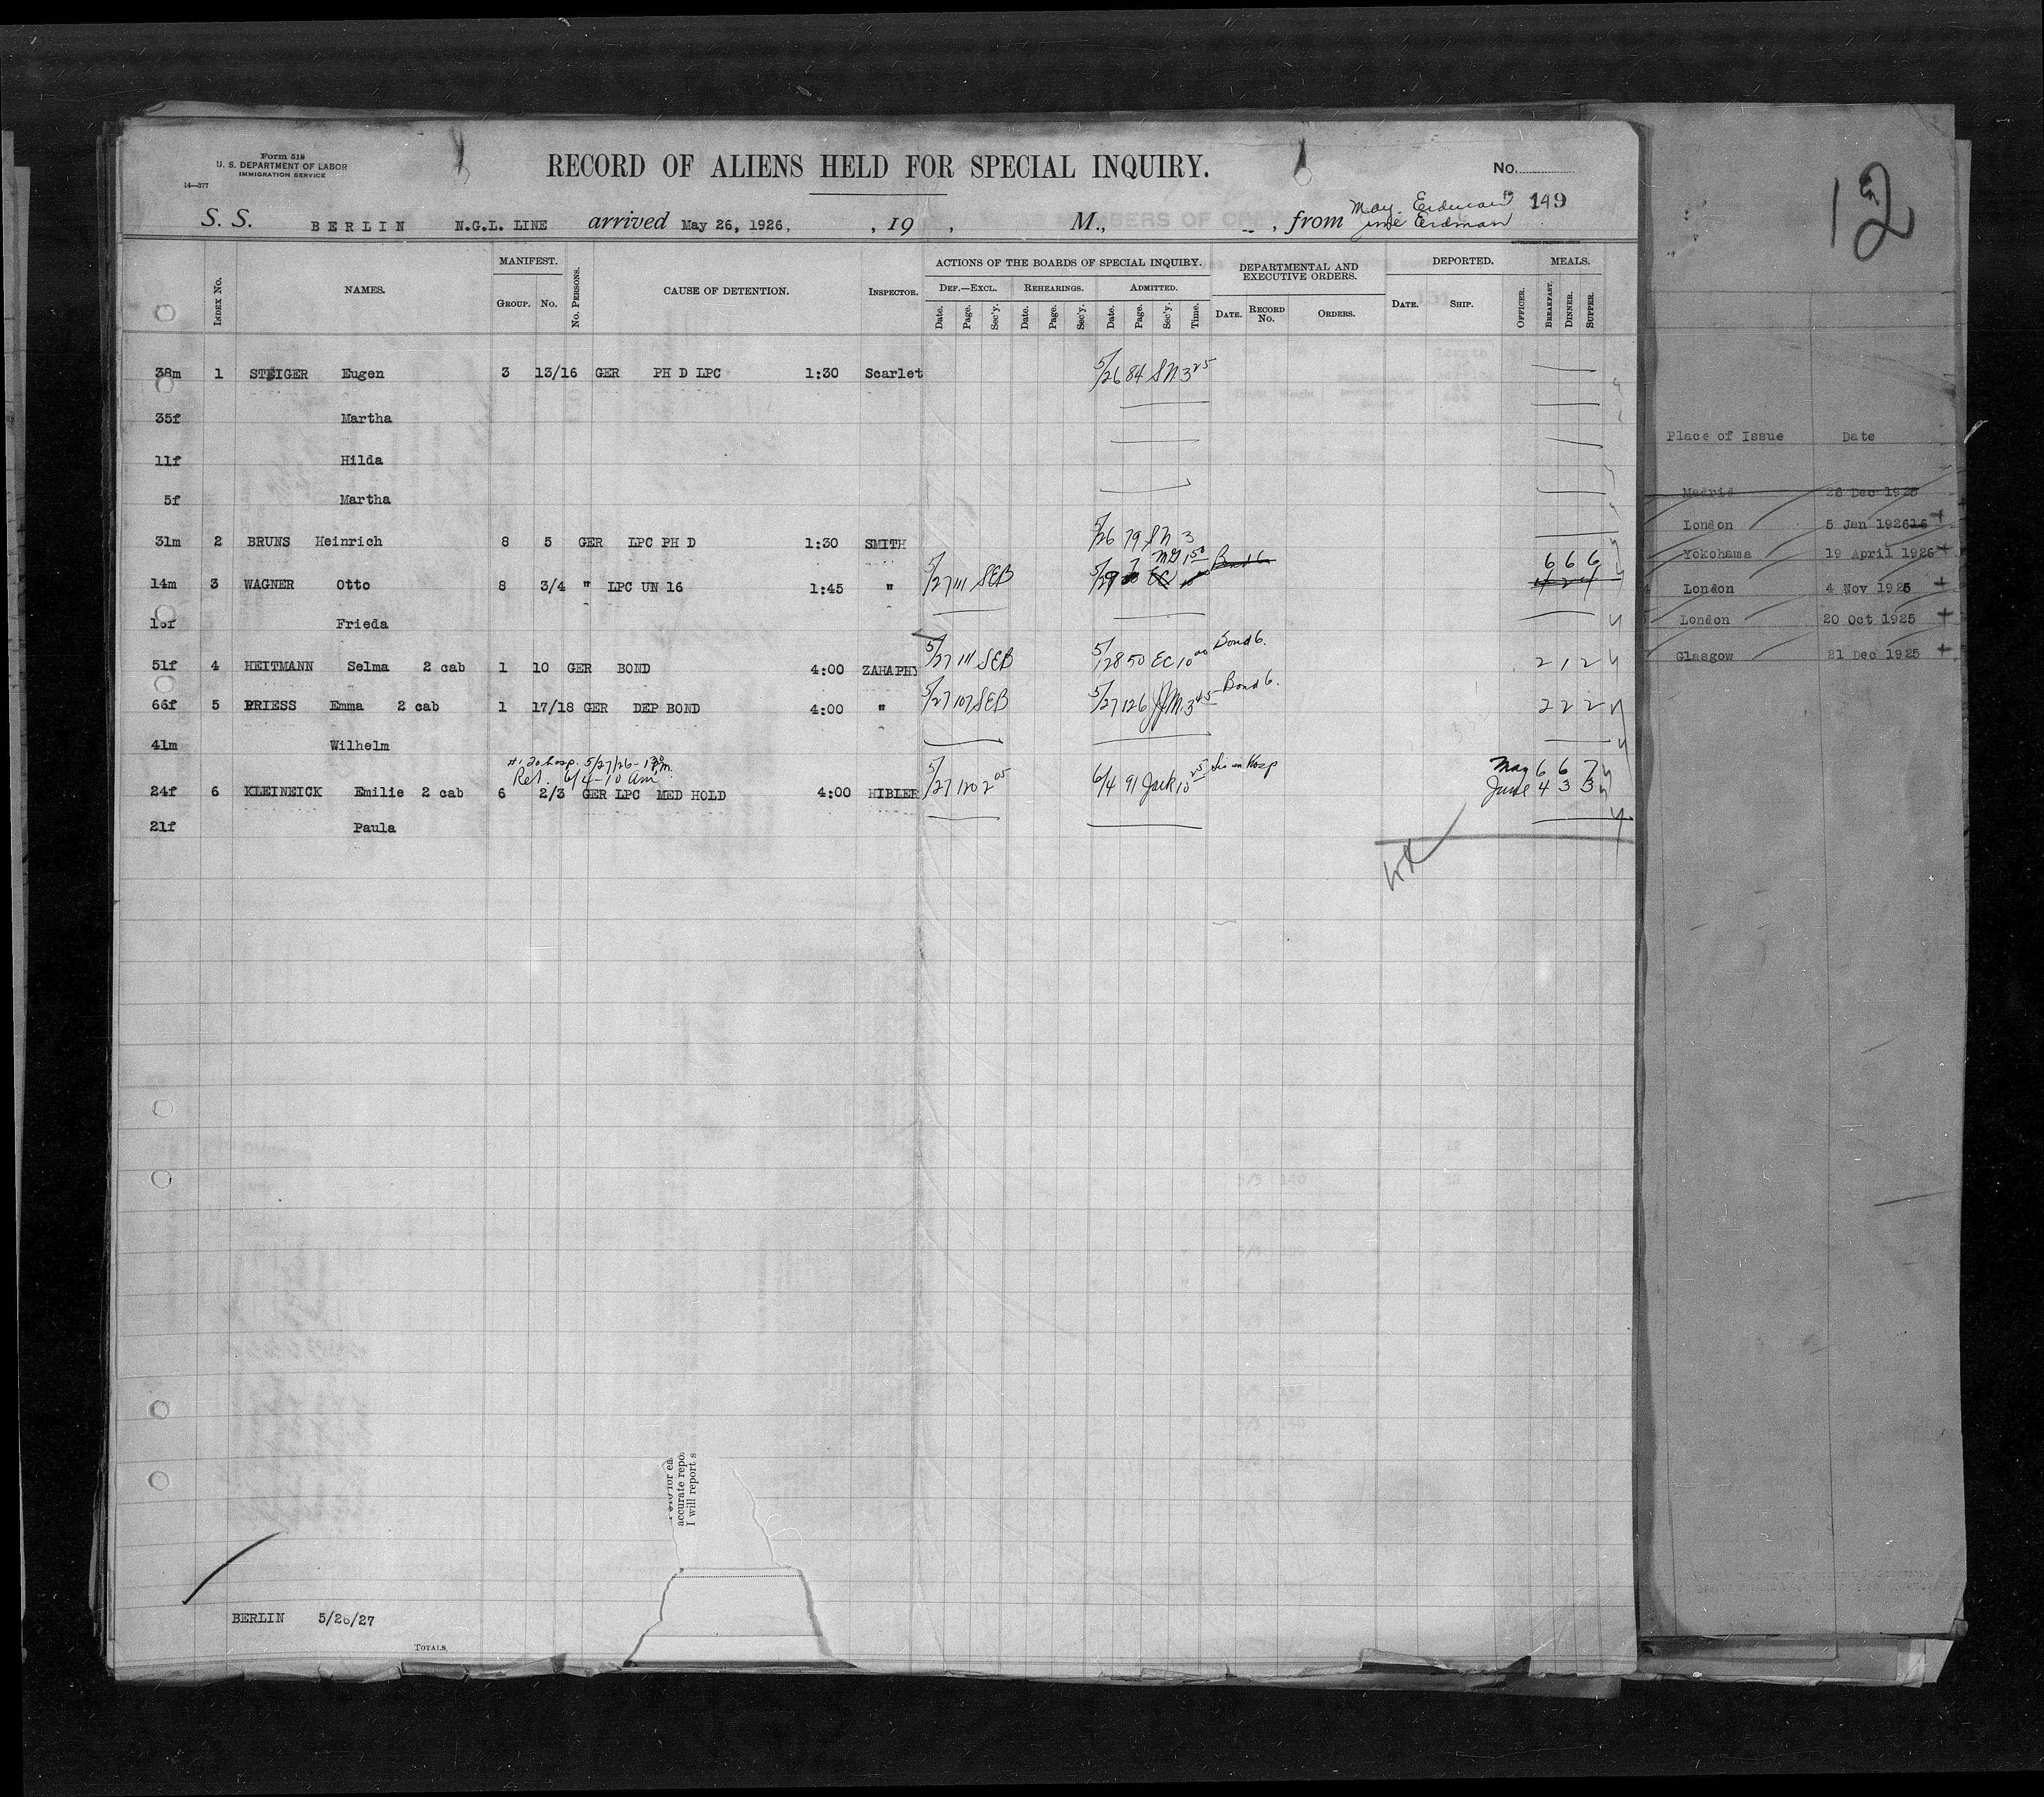 Form 518
U. S. DEPARTMENT OF LABOR
IMMIGRATION SERVICE
14—377
RECORD OF ALIENS HELD FOR SPECIAL INQUIRY.
No.
149
12
S. S. BERLIN N.G.L. LINE arrived May 26, 1926, , 19 , M., , from May. Erdman
June Erdman
INDEX No. NAMES. MANIFEST. GROUP. No. No. PERSONS. CAUSE OF DETENTION. INSPECTOR. ACTIONS OF THE BOARDS OF SPECIAL INQUIRY. DEF.—EXCL. Date. Page. Sec'y. REHEARINGS. Date. Page. Sec'y. ADMITTED. Date. Page. Sec'y. Time. DEPARTMENTAL AND EXECUTIVE ORDERS. DATE. RECORD No. ORDERS. DEPORTED. DATE. SHIP. OFFICER. MEALS. BREAKFAST. DINNER. SUPPER.
38m 1 STEIGER Eugen 3 13/16 GER PH D LPC 1:30 Scarlet 5/26 84 SN 3 25
35f Martha
11f Hilda
5f Martha
31m 2 BRUNS Heinrich 8 5 GER LPC PH D 1:30 SMITH 5/26 79 SN 3
14m 3 WAGNER Otto 8 3/4 " LPC UN 16 1:45 " 5/27 111 SEB 5/29 7 MG 1 50 Bond 6 6 6 6
EC 4 2 4
Frieda
51f 4 HEITMANN Selma 2 cab 1 10 GER BOND 4:00 ZAHAPHY 5/27 111 SEB 5/28 50 EC 10 00 Bond 6. 2 1 2
66f 5 PRIESS Emma 2 cab 1 17/18 GER DEP BOND 4:00 " 5/27 107 SEB 5/27 126 JJM. 3 45 Bond 6. 2 2 2
41m Wilhelm
to hosp. 5/27/26 - 1 30 Pm.
Ret. 6/4-10 Am
24f 6 KLEINEICK Emilie 2 cab 6 2/3 GER LPC MED HOLD 4:00 HIBLER 5/27 120 2 05 6/4 91 Jack 10 25 Hosp May 6 6 7
June 4 3 3
21f Paula
accurate repo
I will report s
BERLIN 5/26/27
TOTALS.
Place of Issue Date
Madrid 26 Dec 1925
London 5 Jan 1926
Yokohama 19 April 1926
London 4 Nov 1925
London 20 Oct 1925
Glasgow 21 Dec 1925